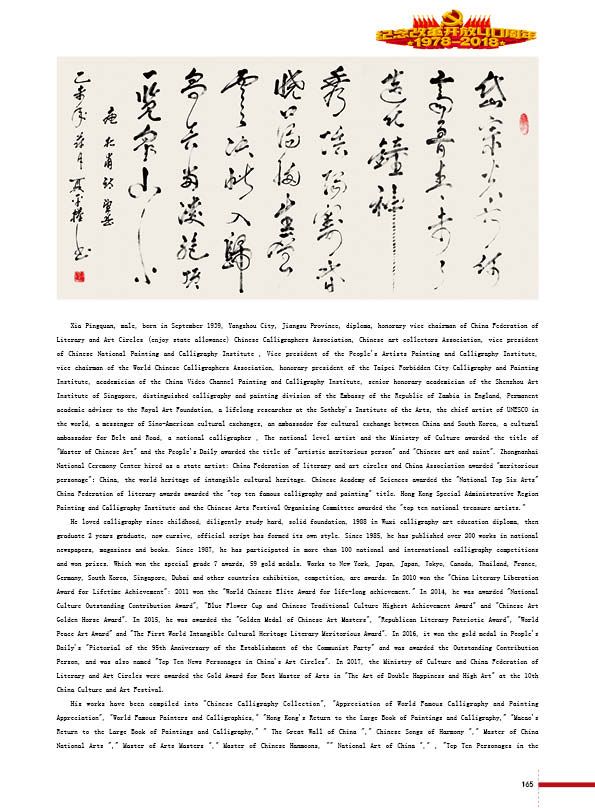 纪念改革开放40周年
★1978-2018★
岱宗夫如何
齊魯青未了
造化鐘神
秀陰陽割昏
曉盪胸生曾
雲決眥入歸
鳥會當淩絕頂
一覽衆山小
唐杜甫詩望岳
乙未年 月夏 權書
Xia Pingquan, male, born in September 1939, Yangzhou City, Jiangsu Province, diploma, honorary vice chairman of China Federation of
Literary and Art Circles (enjoy state allowance) Chinese Calligraphers Association, Chinese art collectors Association, vice president
of Chinese National Painting and Calligraphy Institute , Vice president of the People's Artists Painting and Calligraphy Institute,
vice chairman of the World Chinese Calligraphers Association, honorary president of the Taipei Forbidden City Calligraphy and Painting
Institute, academician of the China Video Channel Painting and Calligraphy Institute, senior honorary academician of the Shenzhou Art
Institute of Singapore, distinguished calligraphy and painting division of the Embassy of the Republic of Zambia in England, Permanent
academic adviser to the Royal Art Foundation, a lifelong researcher at the Sotheby's Institute of the Arts, the chief artist of UNESCO in
the world, a messenger of Sino-American cultural exchanges, an ambassador for cultural exchange between China and South Korea, a cultural
ambassador for Belt and Road, a national calligrapher , The national level artist and the Ministry of Culture awarded the title of
"Master of Chinese Art" and the People's Daily awarded the title of "artistic meritorious person" and "Chinese art and saint". Zhongnanhai
National Ceremony Center hired as a state artist: China Federation of literary and art circles and China Association awarded "meritorious
personage": China, the world heritage of intangible cultural heritage. Chinese Academy of Sciences awarded the "National Top Six Arts"
China Federation of literary awards awarded the "top ten famous calligraphy and painting" title. Hong Kong Special Administrative Region
Painting and Calligraphy Institute and the Chinese Arts Festival Organizing Committee awarded the "top ten national treasure artists."
He loved calligraphy since childhood, diligently study hard, solid foundation, 1988 in Wuxi calligraphy art education diploma, then
graduate 2 years graduate, now cursive, official script has formed its own style. Since 1985, he has published over 200 works in national
newspapers, magazines and books. Since 1987, he has participated in more than 100 national and international calligraphy competitions
and won prizes. Which won the special grade 7 awards, 59 gold medals. Works to New York, Japan, Japan, Tokyo, Canada, Thailand, France,
Germany, South Korea, Singapore, Dubai and other countries exhibition, competition, are awards. In 2010 won the "China Literary Liberation
Award for Lifetime Achievement": 2011 won the "World Chinese Elite Award for life-long achievement." In 2014, he was awarded "National
Culture Outstanding Contribution Award", "Blue Flower Cup and Chinese Traditional Culture Highest Achievement Award" and "Chinese Art
Golden Horse Award". In 2015, he was awarded the "Golden Medal of Chinese Art Masters", "Republican Literary Patriotic Award", "World
Peace Art Award" and "The First World Intangible Cultural Heritage Literary Meritorious Award". In 2016, it won the gold medal in People's
Daily's "Pictorial of the 95th Anniversary of the Establishment of the Communist Party" and was awarded the Outstanding Contribution
Person, and was also named "Top Ten News Personages in China's Art Circles". In 2017, the Ministry of Culture and China Federation of
Literary and Art Circles were awarded the Gold Award for Best Master of Arts in "The Art of Double Happiness and High Art" at the 10th
China Culture and Art Festival.
His works have been compiled into "Chinese Calligraphy Collection", "Appreciation of World Famous Calligraphy and Painting
Appreciation", "World Famous Painters and Calligraphics," "Hong Kong's Return to the Large Book of Paintings and Calligraphy," "Macao's
Return to the Large Book of Paintings and Calligraphy," " The Great Wall of China "," Chinese Songs of Harmony "," Master of China
National Arts "," Master of Arts Masters "," Master of Chinese Harmoons, "" National Art of China "," , "Top Ten Personages in the
165